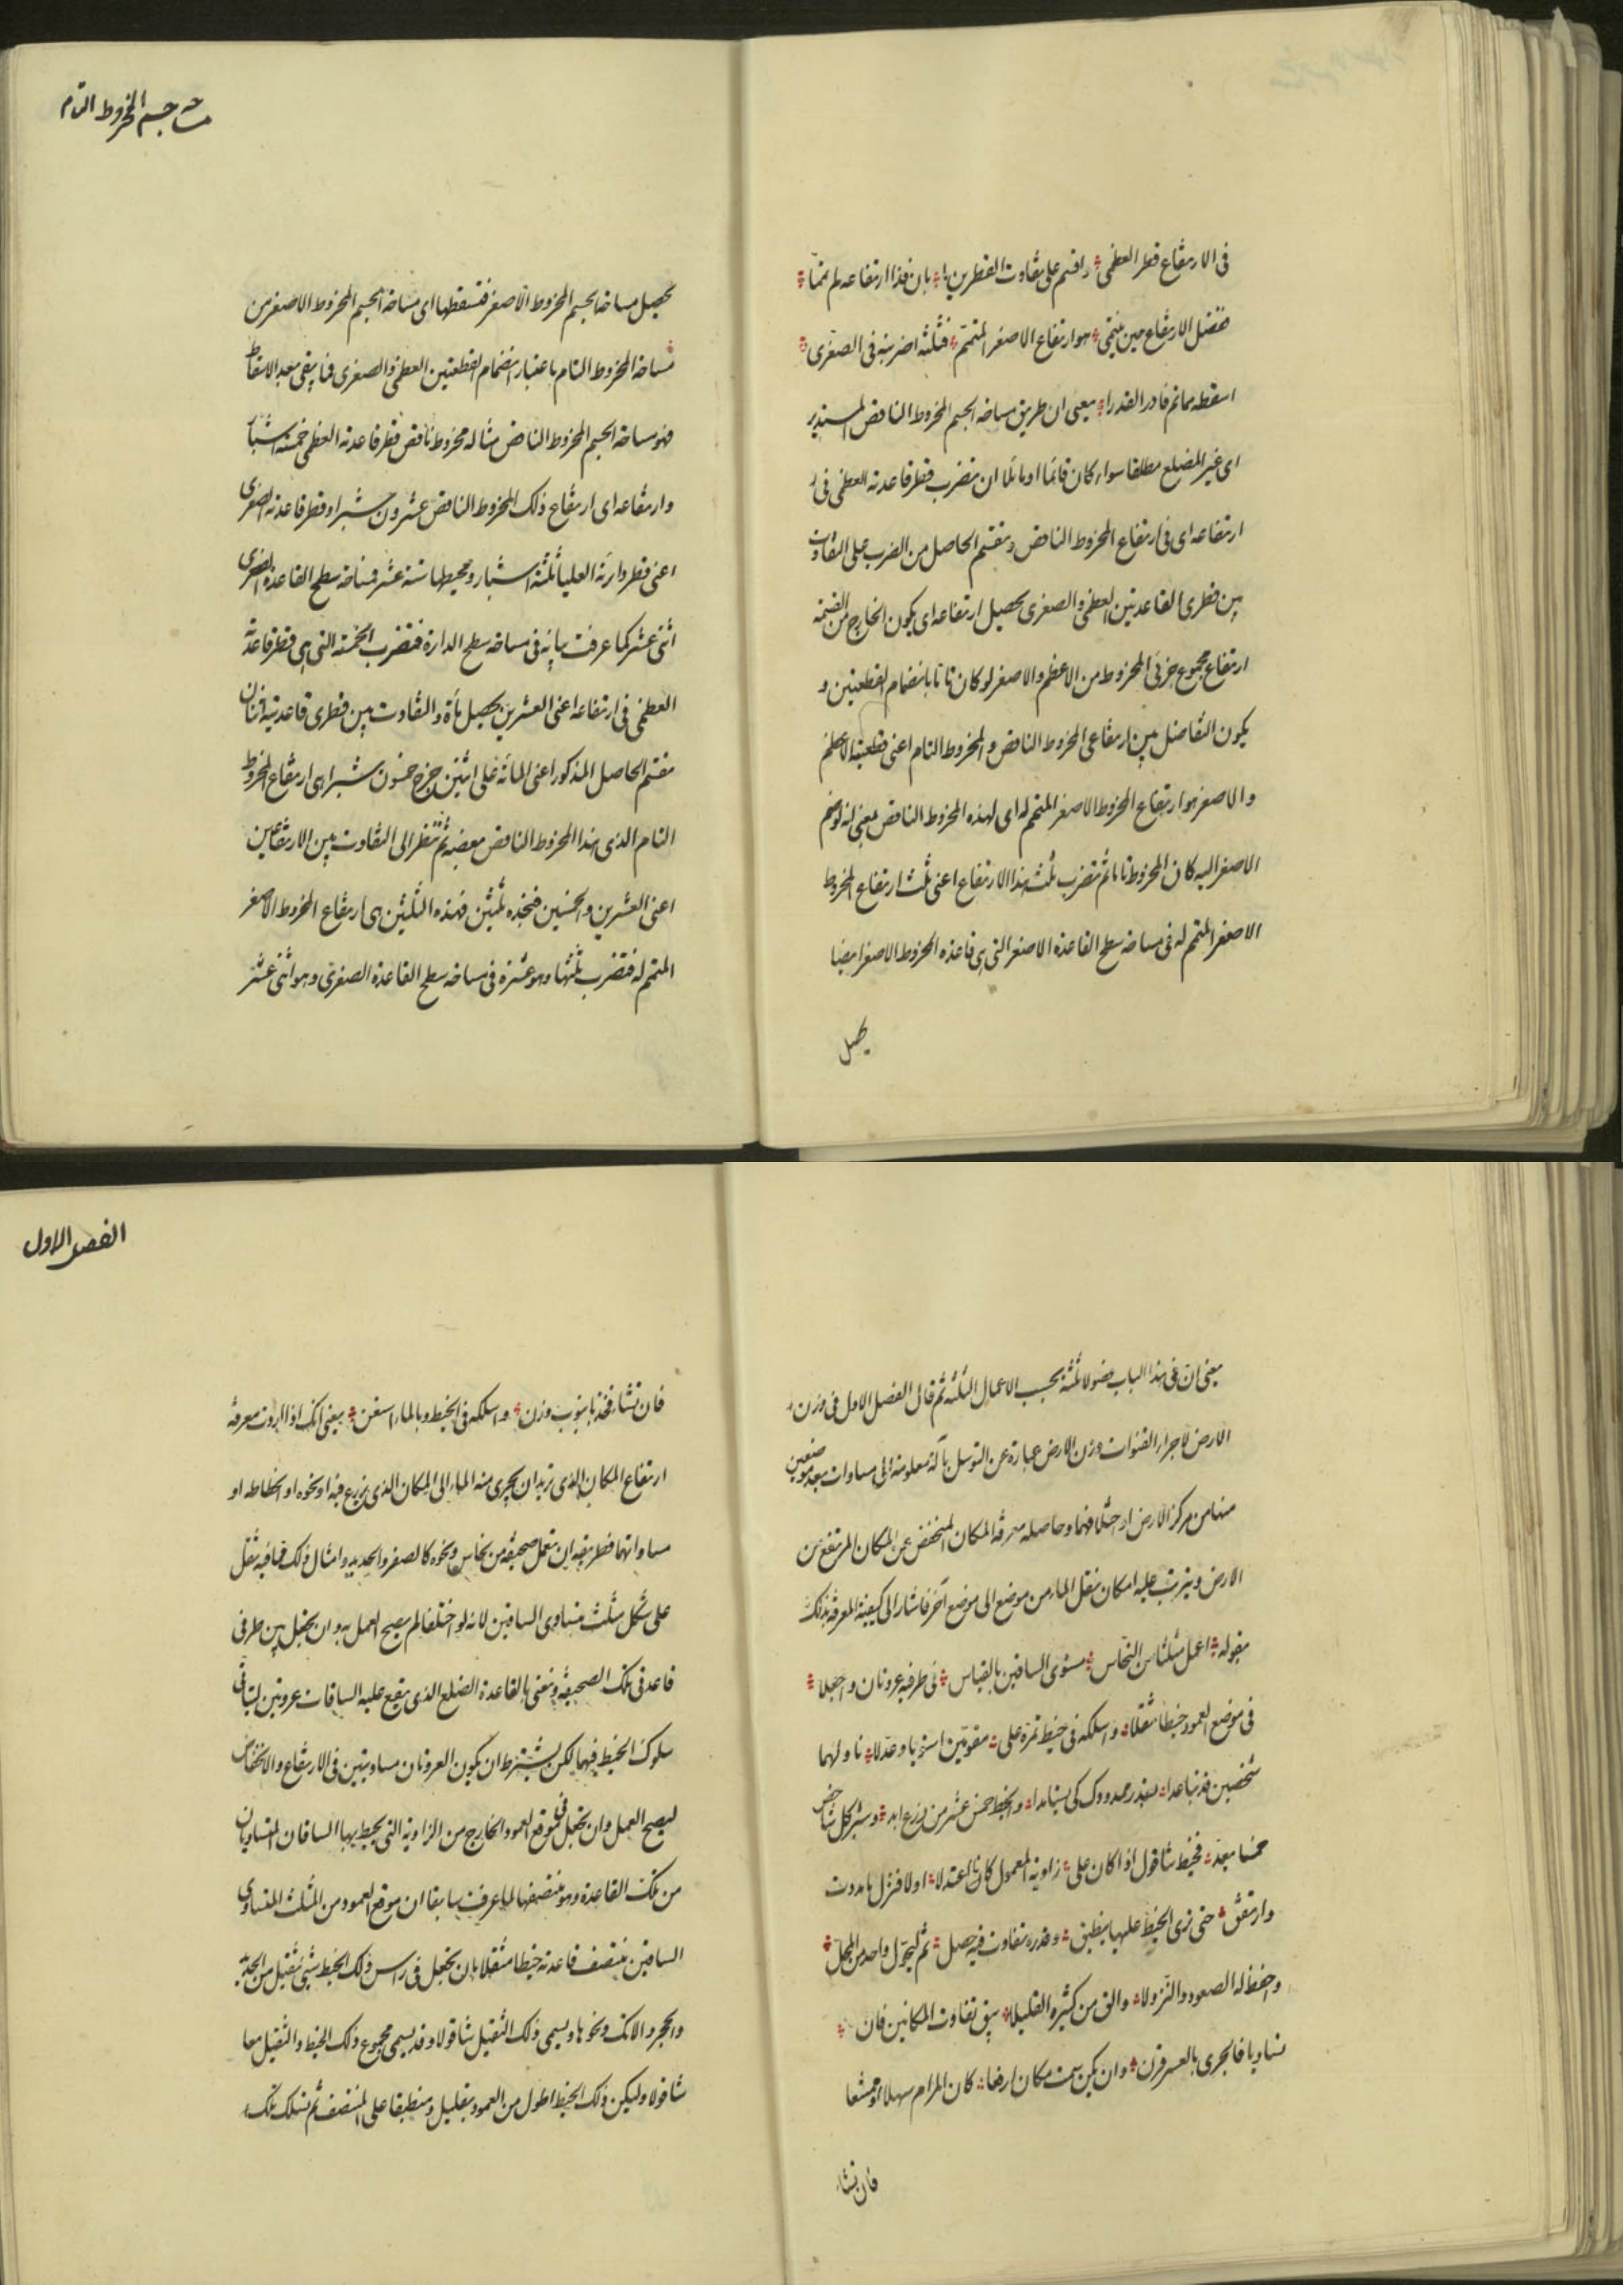 في الارتفاع قطر العظمى واقسم على تفاوت القطرين بان فذا ارتفاعه لم تمّا
ففضل الارتفاع حين ينتمي هو ارتفاع الاصغر المتمّم فثلثه اضربنه في الصغرى
اسقطه مما تم فادر القدرا يعني ان طريق مساحة الجسم المخروط الناقص المستدير
اى غير المضلع مطلقا سواء كان قائما او مائلا ان تضرب قطر قاعدته العظمى في
ارتفاعه اى في ارتفاع المخروط الناقص وتقسم الحاصل من الضرب على التفاوت
بين قطرى القاعدتين العظمى والصغرى يحصل ارتفاعه اى يكون الخارج من القسمة
ارتفاع مجموع جزئى المخروط من الاعظم والاصغر لو كان تاما بانضمام القطعتين و
يكون التفاضل بين ارتفاعى المخروط الناقص والمخروط التام اعنى قطعتيه الاعظم
والاصغر هو ارتفاع المخروط الاصغر المتمم له اى لهذه المخروط الناقص يعنى انه لو ضم
الاصغر اليه كان المخروط تاما ثم تضرب ثلث هذا الارتفاع اعنى ثلث ارتفاع المخروط
الاصغر المتمم له في مساحة سطح القاعدة الاصغر التى هى قاعدة المخروط الاصغر ايضا
يحصل
مساحة جسم المخروط التام
يحصل مساحة الجسم المخروط الاصغر فتسقطها اى مساحة الجسم المخروط الاصغر من
مساحة المخروط التام باعتبار انضمام القطعتين العظمى والصغرى فما يبقى بعد الاسقاط
فهو مساحة الجسم المخروط الناقص مثاله مخروط ناقص قطر قاعدته العظمى خمسة اشبار
وارتفاعه اى ارتفاع ذلك المخروط الناقص عشرون شبرا وقطر قاعدته الصغرى
اعنى قطر دائرته العليا ثلثة اشبار ومحيطها تسعة عشر فمساحة سطح القاعدة الصغرى
اثنى عشر كما عرفت بيانه في مساحة سطح الدائرة فتضرب الخمسة التى هى قطر قاعدة
العظمى في ارتفاعه اعنى العشرين يحصل مأة والتفاوت بين قطرى قاعدتيه اثنان
فتقسم الحاصل المذكور اعنى المائة على اثنين خرج خمسون شبرا هى ارتفاع المخروط
التام الذى هذا المخروط الناقص بعضه ثم تنظر الى التفاوت بين الارتفاعين
اعنى العشرين والخمسين فتجده ثلثين فهذه الثلثين هى ارتفاع المخروط الاصغر
المتمم له فتضرب ثلثها وهو عشرة في مساحة سطح القاعدة الصغرى وهو اثنى عشر
يعنى ان في هذا الباب فصولا ثلثة بحسب الاعمال الثلثة ثم قال الفصل الاول في وزن
الارض لاجراء القنوات وزن الارض عبارة عن التوسل بآلة معلومة الى مساوات بعد موضعين
منها من مركز الارض او اختلافهما وحاصله معرفة المكان المنخفض عن المكان المرتفع من
الارض ويترتب عليه امكان نقل الماء من موضع الى موضع آخر فاشار الى كيفية المعرفة بذلك
بقوله اعمل مثلثا من النحاس مستوى الساقين بالقياس في طرفيه عروتان واجعلا
في موضع العمود خيطا مثقلا واسلكه في خيط تمره على مقومين استويا وعدلا ناولهما
شخصين قد تباعدا بقدر ممدودك كى يشاهدا والخيط خمس عشر من ذرع ابد وشبر كل شاخص
خمسا يعد فخيط شاقول اذا كان على زاوية المعمول كان اعتدلا اولا فنزل ما بدوت
وارتفق حتى ترى الخيط عليها ينطبق وقدره تفاوت فيه حصل ثم ليحول واحد من المحل
واحفظ له الصعود والنزولا والق من كثيره القليلا يبق تفاوت المكانين فان
تساويا فالجرى بالعسر قرن وان يكن سمت مكان ارفعا كان المرام سهلا او ممتنعا
فان تشاء
الفصل الاول
فان تشاء فخذ بانبوب وزن واسلكه في الخيط وبالماء استعن يعنى انك اذا اردت معرفة
ارتفاع المكان الذى تريد ان يجرى منه الماء الى المكان الذى يزرع فيه او نحوه او انحطاطه او
مساواتهما فطريقه ان تعمل صحيفة من نحاس ونحوه كالصفر والحديد وامثال ذلك مما فيه ثقل
على شكل مثلث متساوى الساقين لانه لو اختلفا لم يصح العمل به وان يجعل بين طرفى
قاعدة تلك الصحيفة ونعنى بالقاعدة الضلع الذى يقع عليه الساقات عروتين ليتأتى
سلوك الخيط فيهما لكن يشترط ان يكون العروتان مساويتين في الارتفاع والانخفاض
ليصح العمل وان يجعل في موقع العمود الخارج من الزاوية التى يحيط بها الساقان المتساويان
من تلك القاعدة وهو منتصفها لما عرفت سابقا ان موقع العمود من المثلث المتساوى
الساقين منتصف قاعدته خيطا مثقلا بان يجعل في راس ذلك الخيط شيئ ثقيل من الحديد
والحجر والانك ونحوها ويسمى ذلك الثقيل شاقولا وقد يسمى مجموع ذلك الخيط والثقيل معا
شاقولا وليكن ذلك الخيط اطول من العمود بقليل ومنطبقا على المنتصف ثم تسلك تلك